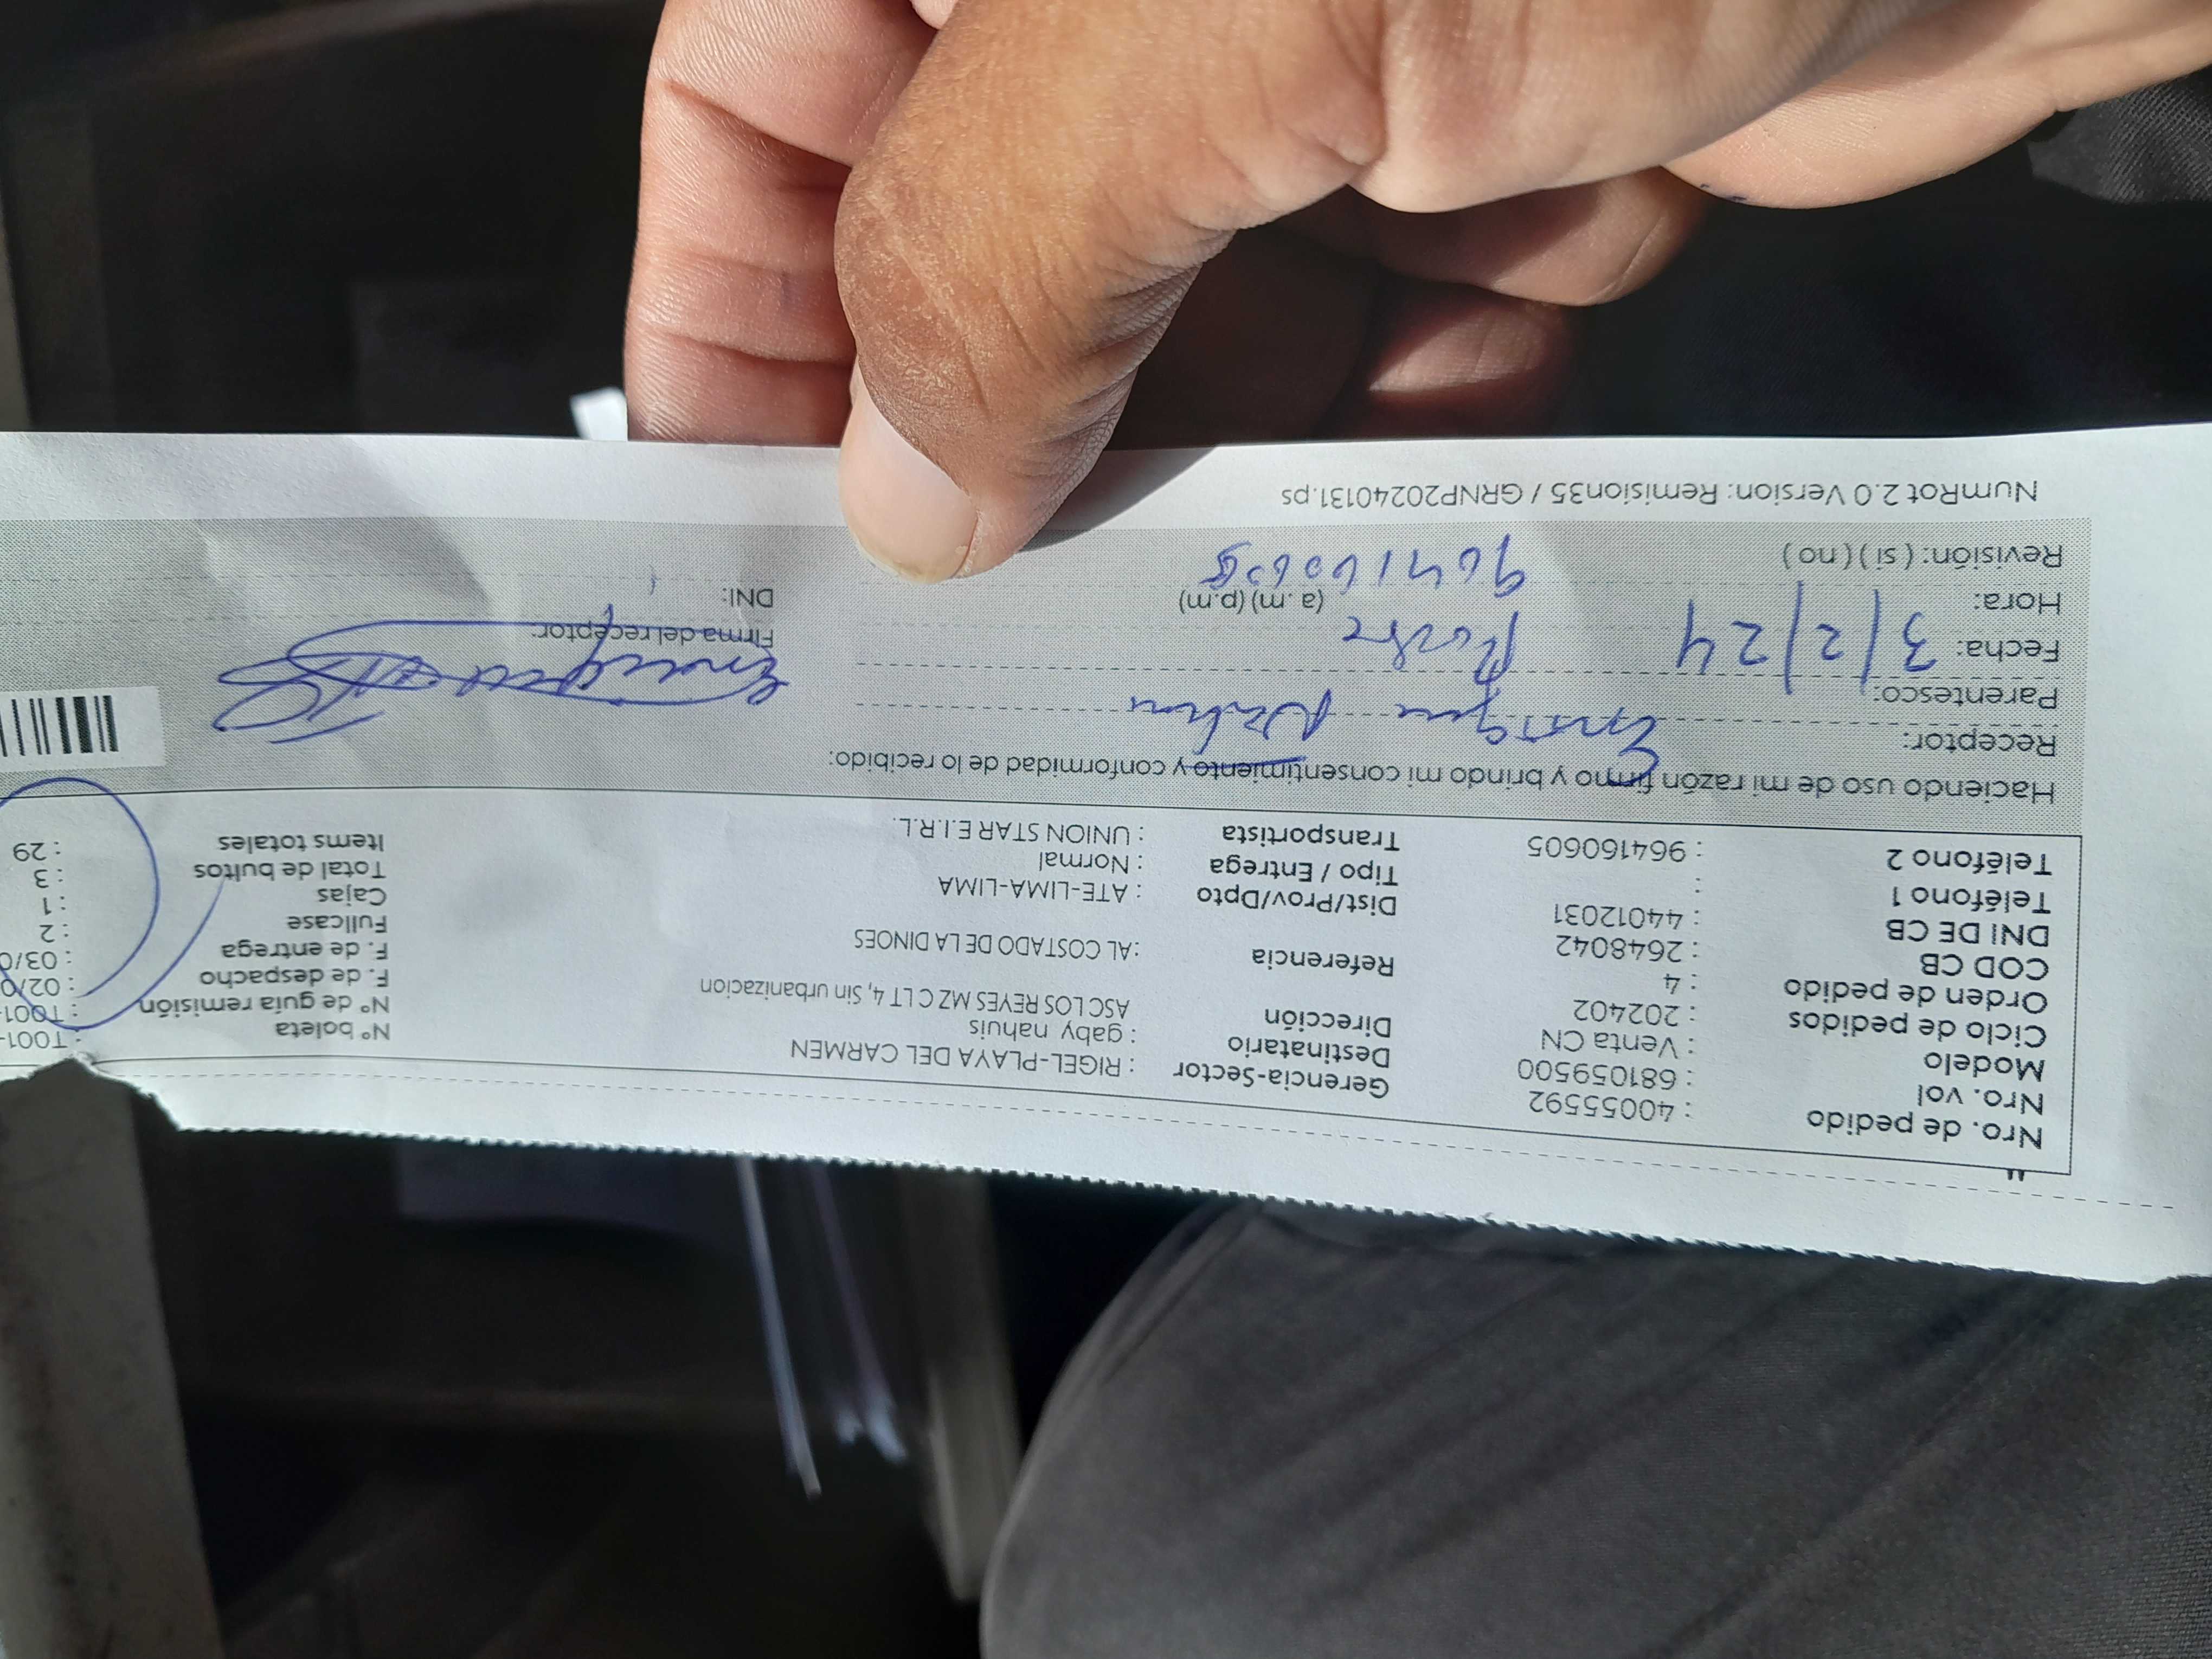 Nro. de pedido : 40055592
Nro. vol : 681059500
Modelo : Venta CN
Ciclo de pedidos : 202402
Orden de pedido : 4
COD CB : 2648042
DNI DE CB : 44012031
Teléfono 1 :
Teléfono 2 : 964160605
Gerencia-Sector : RIGEL-PLAYA DEL CARMEN
Destinatario : gaby nahuis
Dirección ASC LOS REYES MZ C LT 4, Sin urbanizacion
Referencia : AL COSTADO DE LA DINOES
Dist/Prov/Dpto : ATE-LIMA-LIMA
Tipo / Entrega : Normal
Transportista : UNION STAR E.I.R.L.
N° boleta : T001-
N° de guía remisión : T001-
F. de despacho : 02/0
F. de entrega : 03/0
Fullcase : 2
Cajas : 1
Total de bultos : 3
Items totales : 29
Haciendo uso de mi razón firmo y brindo mi consentimiento y conformidad de lo recibido:
Receptor:
Parentesco:
Fecha: 3/2/24
Hora: (a.m) (p.m)
Revisión: ( si ) ( no )
Firma del receptor:
DNI:
NumRot 2.0 Version: Remision35 / GRNP20240131.ps